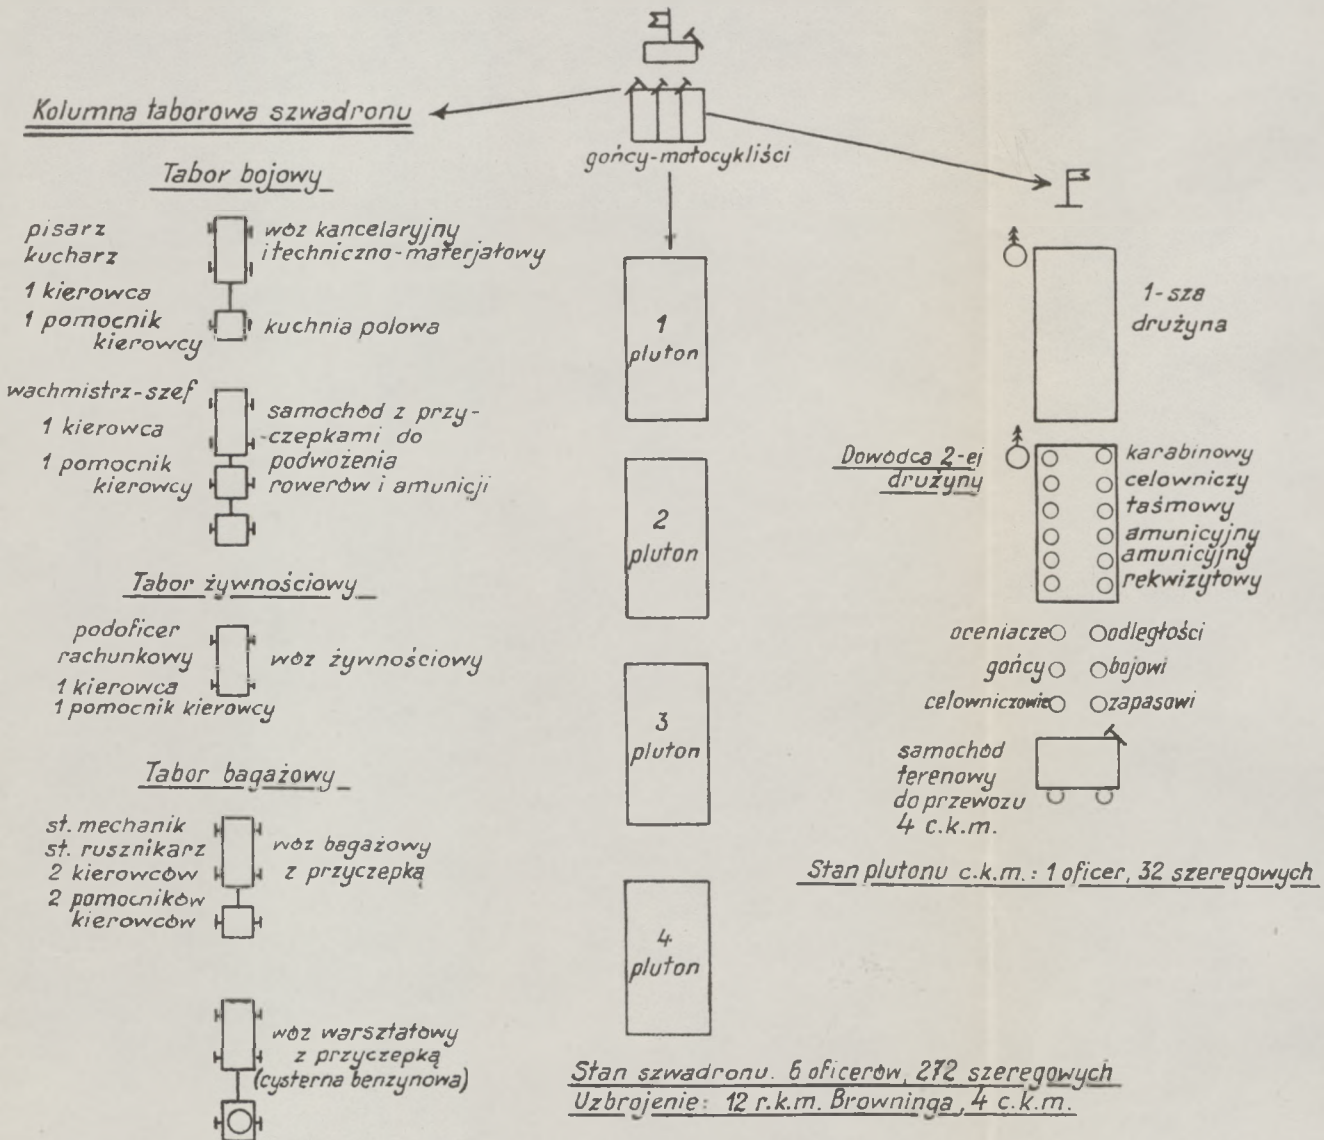 Kolumna taborowa szwadronu
gońcy-motocykliści
Tabor bojowy
pisarz
kucharz
1 kierowca
1 pomocnik
kierowcy
wóz kancelaryjny
i techniczno-materjałowy
kuchnia polowa
wachmistrz-szef
1 kierowca
1 pomocnik
kierowcy
samochód z przy-
-czepkami do
podwożenia
rowerów i amunicji
Tabor żywnościowy
podoficer
rachunkowy
1 kierowca
1 pomocnik kierowcy
wóz żywnościowy
Tabor bagażowy
st. mechanik
st. rusznikarz
2 kierowców
2 pomocników
kierowców
wóz bagażowy
z przyczepką
wóz warsztatowy
z przyczepką
(cysterna benzynowa)
1
pluton
2
pluton
3
pluton
4
pluton
Stan szwadronu. 6 oficerów, 272 szeregowych
Uzbrojenie: 12 r.k.m. Browninga, 4 c.k.m.
1-sza
drużyna
Dowódca 2-ej
drużyny
karabinowy
celowniczy
taśmowy
amunicyjny
amunicyjny
rekwizytowy
oceniacze odległości
gońcy bojowi
celowniczowie zapasowi
samochód
terenowy
do przewozu
4 c.k.m.
Stan plutonu c.k.m.: 1 oficer, 32 szeregowych